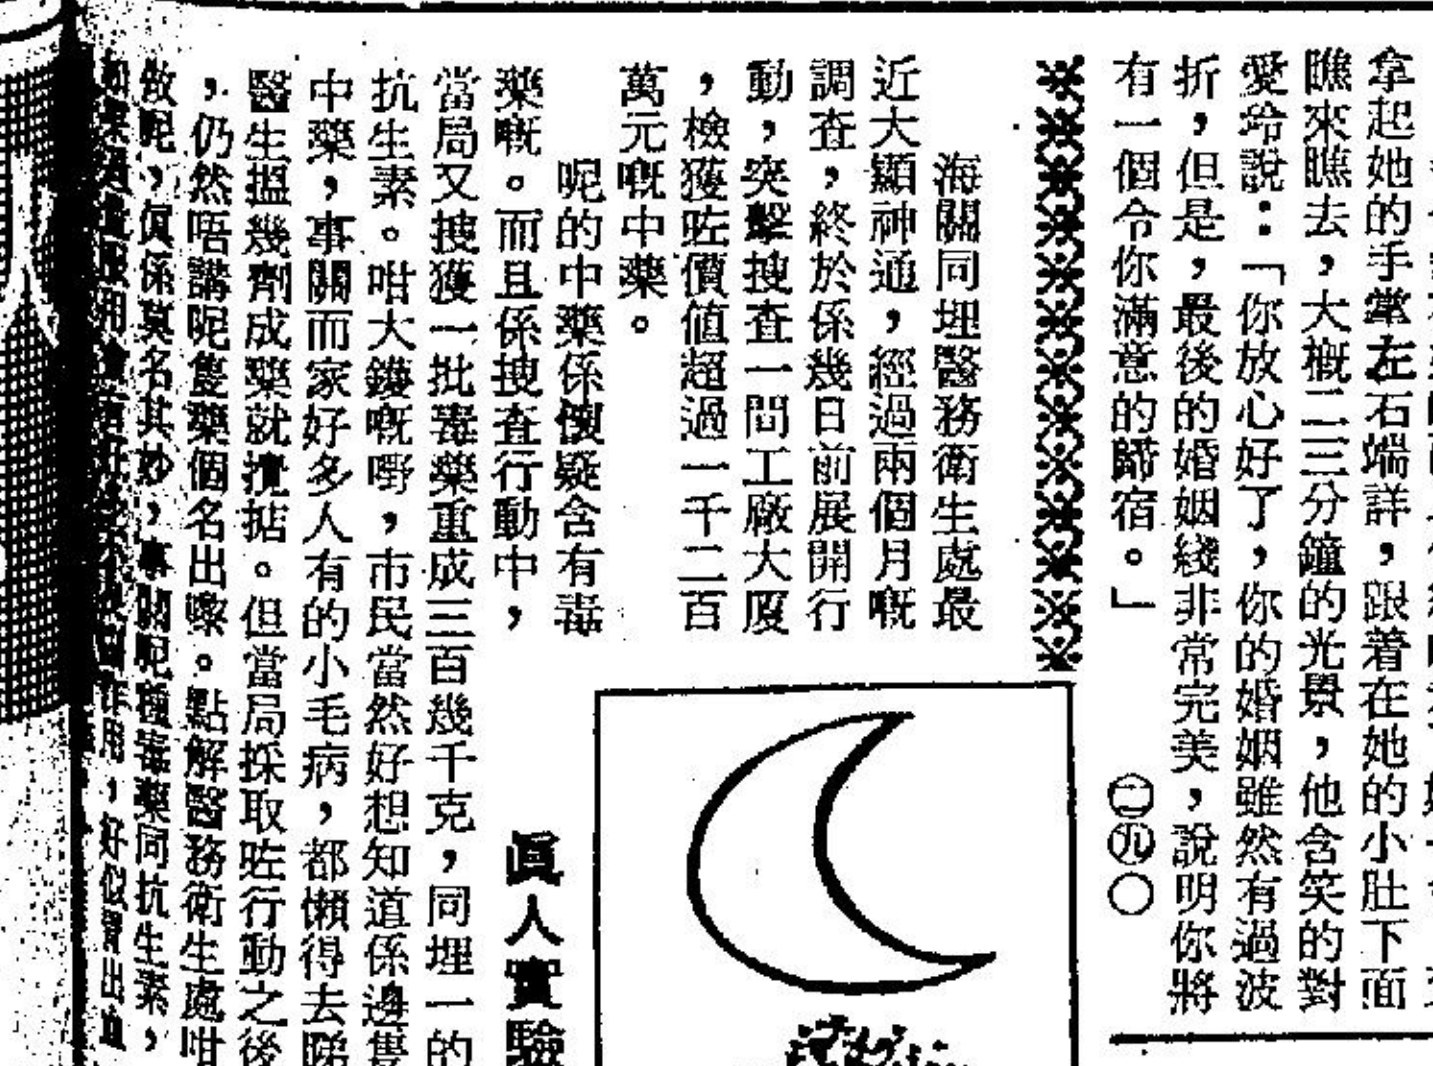 拿起她的手掌左右端詳，跟着在她的小肚下面
瞧來瞧去，大概二三分鐘的光景，他含笑的對
愛玲說：「你放心好了，你的婚姻雖然有過波
折，但是，最後的婚姻綫非常完美，說明你將
有一個令你滿意的歸宿。」
㊁㊈〇
海關同埋醫務衛生處最
近大顯神通，經過兩個月嘅
調查，終於係幾日前展開行
動，突擊搜查一間工廠大厦
，檢獲咗價值超過一千二百
萬元嘅中藥。
呢的中藥係懷疑含有毒
藥嘅。而且係搜查行動中，
當局又搜獲一批毒藥重成三百幾千克，同埋一的
抗生素。咁大鑊嘅嘢，市民當然好想知道係邊隻
中藥，事關而家好多人有的小毛病，都懶得去睇
醫生搵幾劑成藥就攪掂。但當局採取咗行動之後
，仍然唔講呢隻藥個名出嚟。點解醫務衛生處咁
做呢，眞係莫名其妙，事關呢種毒藥同抗生素，
作用，好似胃出血
眞人實驗